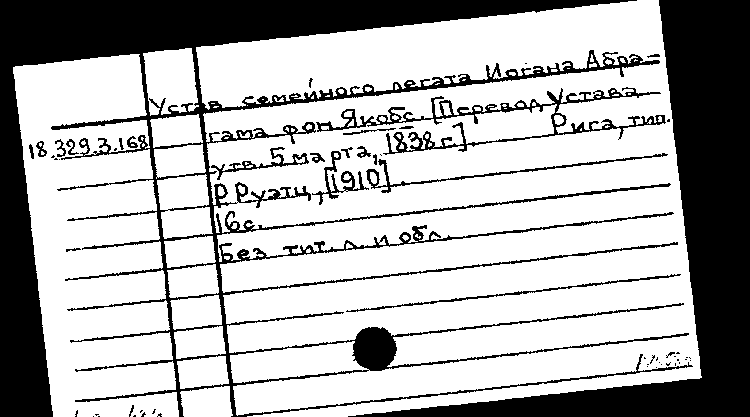 Устав семейного легата Иогана Абра=
гама фон Якобс. [Перевод Устава
18.329.3.168
утв. 5 марта, 1838 г.]. Рига, тип.
Р Руэтц, [1910].
16 с.
Без тит. л. и обл.